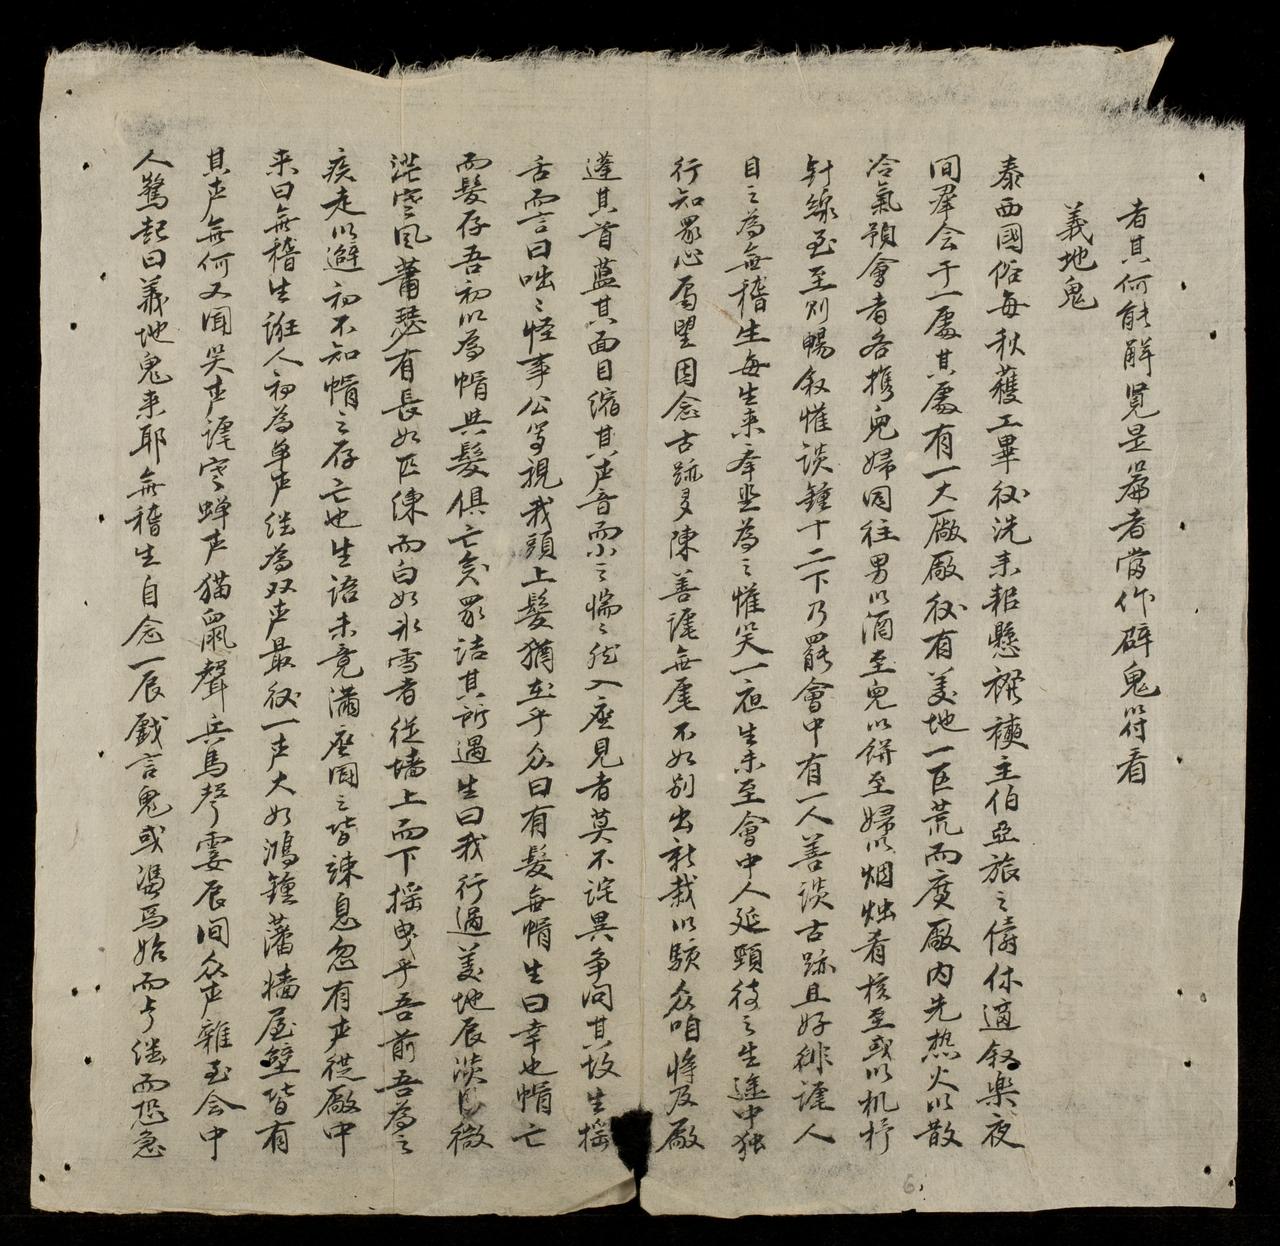 者其何能解覺是篇者當作辟鬼符看
義地鬼
泰西國俗每秋穫工畢後洗耒耜懸襏襫主伯亞旅之儔休適叙樂夜
间羣会于一處其處有一大廠廠後有義地一區荒而廣廠内先热火以散
冷氣預會者各携兒婦同往男以酒至兒以餅至婦以烟烛肴核至或以机杼
針線至至則暢叙懽談鍾十二下乃罷會中有一人善談古跡且好徘謔人
目之為無稽生每生来羣為之懽笑一夜生未至會中人延頸待之生途中独
行知眾心属望因念古跡多陳善謔無尾不如別出新裁以駭众咱将及廠
蓬其首藍其面目缩其声音而小之惴惴然入座見者莫不詫異争问其故生摇
舌而言曰咄咄怪事公等視我頭上髮猶在乎众曰有髮無帽生曰幸也帽亡
而髮存吾初以為帽共髮俱亡矣眾诘其所遇生曰我行過義地辰淡月微
茫寒风蕭瑟有長如匹練而白如氷雪者從墙上而下摇曳乎吾前吾為之
疾走以避初不知帽之存亡也生語未竟滿座囬之皆竦息忽有声從廠中
来曰無稽生誑人初為单声继為双声最後一声大如鴻鍾藩墙屋壁皆有
其声無何又闻哭声謔寒蝉声猫鼠聲兵馬声霎辰间众声雜至会中
人驚起曰義地鬼来耶無稽生自念一辰戯言鬼或馮焉始而亏继而恐急